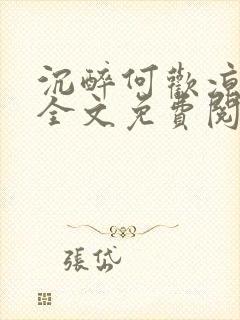 沉醉何歡涼
全文免費閱
張岱